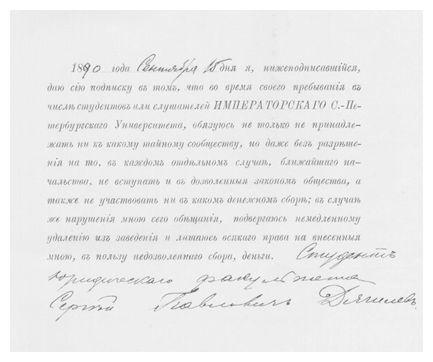 1890 года Сентября 15 дня я, нижеподписавшійся,
даю сію подписку въ томъ, что во время своего пребыванія въ
числѣ студентовъ или слушателей ИМПЕРАТОРСКАГО С.-Пе-
тербургскаго Университета, обязуюсь не только не принадле-
жать ни къ какому тайному обществу, но даже безъ разрѣше-
нія на то, въ каждомъ отдѣльномъ случаѣ, ближайшаго на-
чальства, не вступать и въ дозволенныя закономъ общества, а
также не участвовать ни въ какомъ денежномъ сборѣ; въ случаѣ
же нарушенія мною сего обѣщанія, подвергаюсь немедленному
удаленію изъ заведенія и лишаюсь всякаго права на внесенныя
мною, въ пользу недозволеннаго сбора, деньги. Студентъ
юридическаго факультета
Сергѣй Павловичъ Дягилевъ